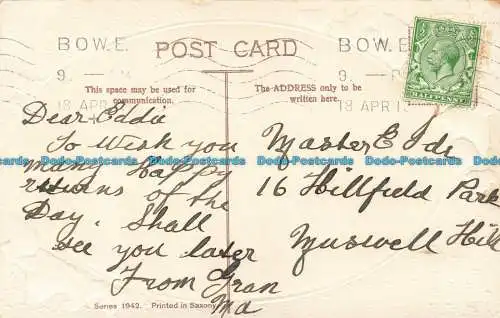 BOW. E.
POST CARD
BOW. E.
18 APR
18 APR 1
HALFPENNY
This space may be used for
communication.
The ADDRESS only to be
written here.
Dear Eddie
To Wish you
many Happy
returns of the
Day. Shall
see you later
From Gran
Ma
Master E
16 Hillfield Park
Muswell Hill
Dodo-Postcards Dodo-Postcards Dodo-Postcards Dodo-Postcards Dodo-Postcards
Series 1942. Printed in Saxony